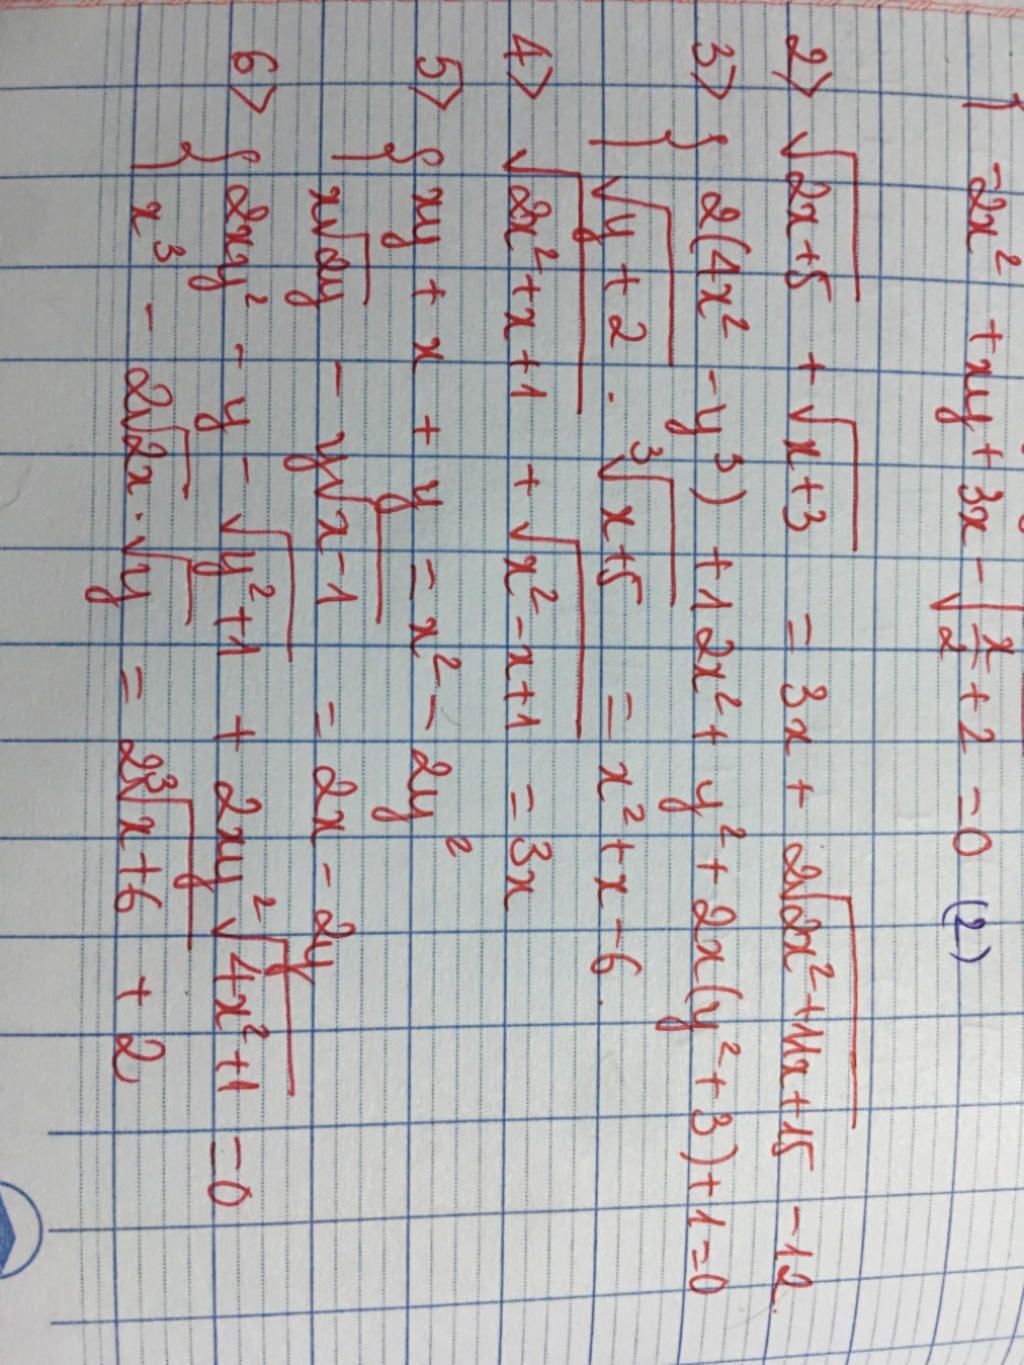 -2x² + xy + 3x - √(x/2 + 2) = 0 (2)
2> √(2x+5) + √(x+3) = 3x + 2√(2x²+11x+15) - 12.
3> { 2(4x² - y³) + 12x² + y² + 2x(y²+3) + 1 = 0
√(y+2) . ³√(x+5) = x² + x - 6.
4> √(2x²+x+1) + √(x²-x+1) = 3x
5> { xy + x + y = x² - 2y²
x√(2y) - y√(x-1) = 2x - 2y
6> { 2xy² - y - √(y²+1) + 2xy²√(4x²+1) = 0
x³ - 2√(2x) . √y = 2³√(x+6) + 2